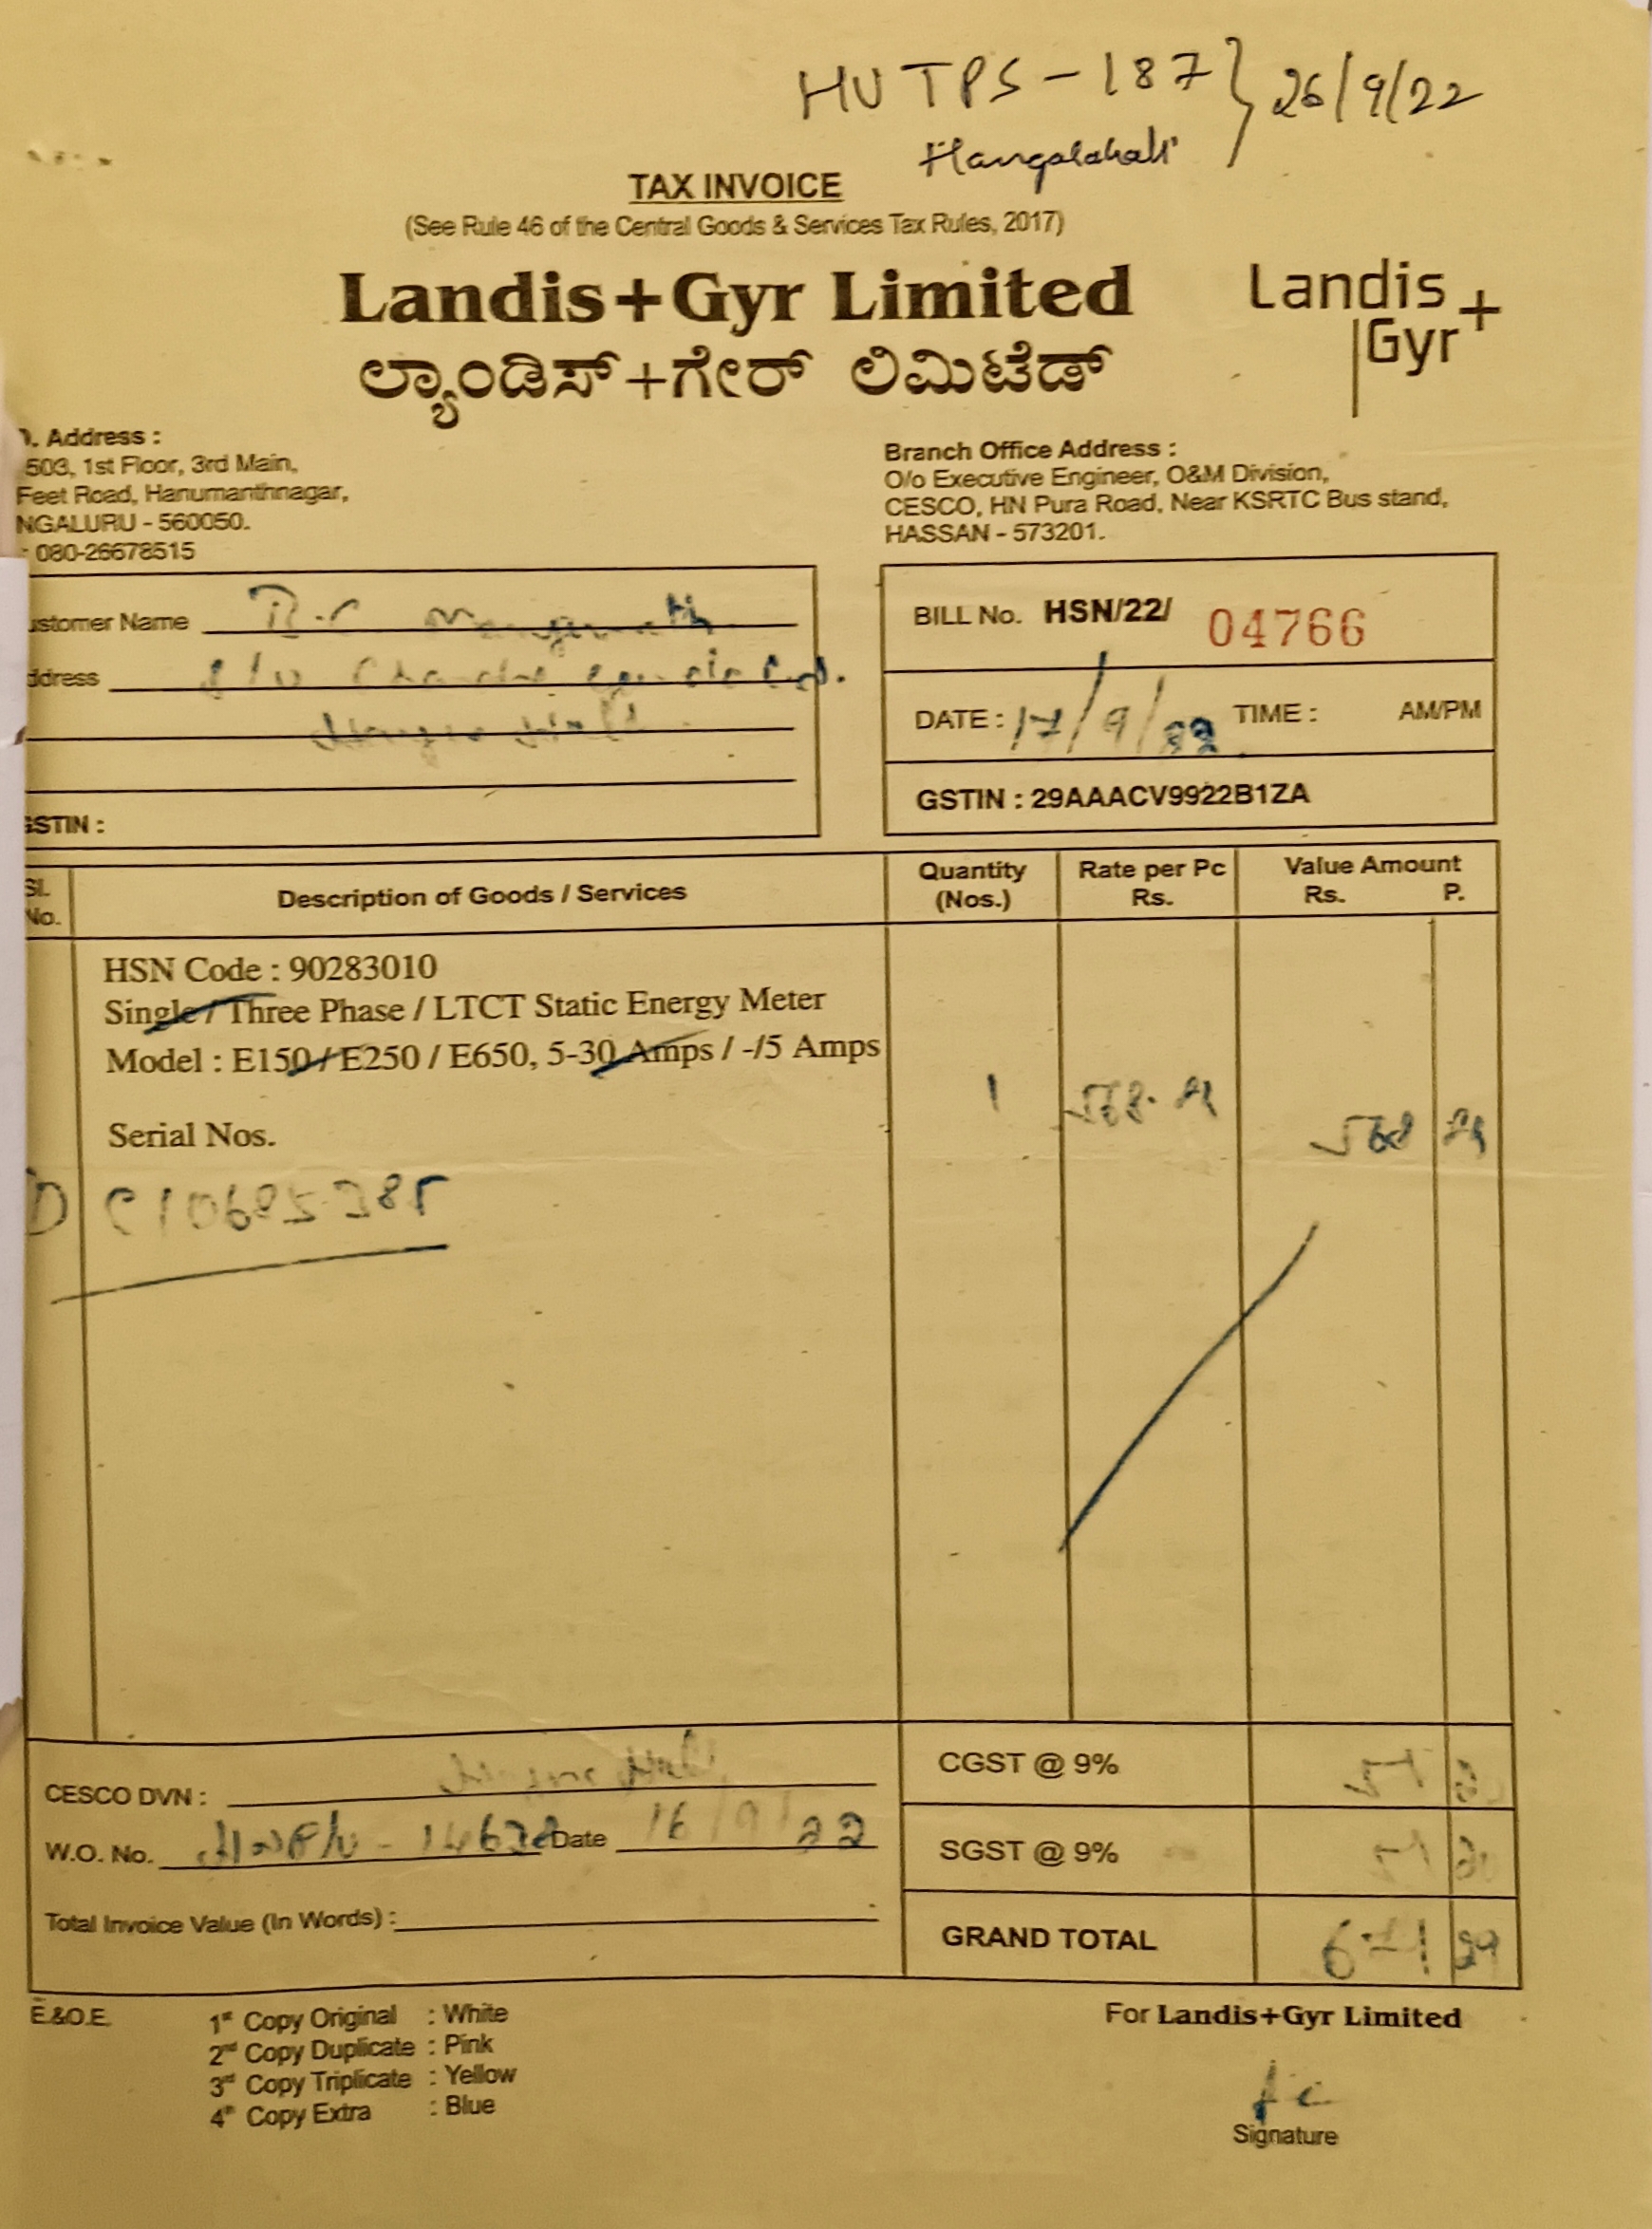 HUTPS-187 } 26/9/22
TAX INVOICE
(See Rule 46 of the Central Goods & Services Tax Rules, 2017)
Landis+Gyr Limited
ಲ್ಯಾಂಡಿಸ್+ಗೇರ್ ಲಿಮಿಟೆಡ್
Landis+
Gyr
. Address :
503, 1st Floor, 3rd Main,
Feet Road, Hanumanthnagar,
NGALURU - 560050.
: 080-26678515
Branch Office Address :
O/o Executive Engineer, O&M Division,
CESCO, HN Pura Road, Near KSRTC Bus stand,
HASSAN - 573201.
ustomer Name
ddress
GSTIN :
BILL No. HSN/22/ 04766
DATE : 17/9/22 TIME : AM/PM
GSTIN : 29AAACV9922B1ZA
Sl. No. Description of Goods / Services Quantity (Nos.) Rate per Pc Rs. Value Amount Rs. P.
HSN Code : 90283010
Single / Three Phase / LTCT Static Energy Meter
Model : E150 / E250 / E650, 5-30 Amps / -/5 Amps
1
Serial Nos.
CESCO DVN :
W.O. No. Date 16/9/22
Total Invoice Value (In Words) :
CGST @ 9%
SGST @ 9%
GRAND TOTAL 671
E.&O.E.
1st Copy Original : White
2nd Copy Duplicate : Pink
3rd Copy Triplicate : Yellow
4th Copy Extra : Blue
For Landis+Gyr Limited
Signature